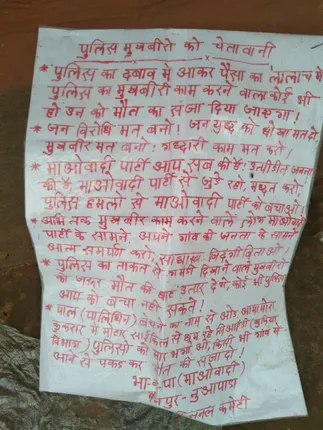 पुलिस मुखबीरो को चेतावानी
* पुलिस का दबाव मे आकर पैसा का लालाच मे
पुलिस का मुखबीरी काम करने वाला कोई भी
हो उन को मौत का सजा दिया जाएगा!
* जन विरोधि मत बनो! जन युध्द को धोखा मत दो
मुखबीर मत बनो! गध्दारी काम मत करो!
* माओवादी पार्टी आप सब की है! उत्पीडीत जनता
की है माओवादी पार्टी से जुडे रहो, मद्दत करो,
पुलिस हमलो से माओवादी पार्टी को बचाओ!
* आज तक मुखबीर काम करने वाले लोग माओवादी
पार्टी के सामने अपने गांव की जनता के सामने
आत्म समर्पण करो, साधारण जिंदगी बिताओ
* पुलिस का ताकत से दिखाने वाले मुखबीरो
को जरूर मौत की घाट उतार देंगे कोई भी पुलिस
आप को बचा नही सकते!
* पाल (पालिथिन) बेचने का नाम से और
मे मोटार साईकिल से घुम रहे
पुलिसो को मार भगा ओ, किसी भी गांव मे
आने से पकड कर मौत की सजा दो!
भा-क-पा (माओवादी)
कमेटी